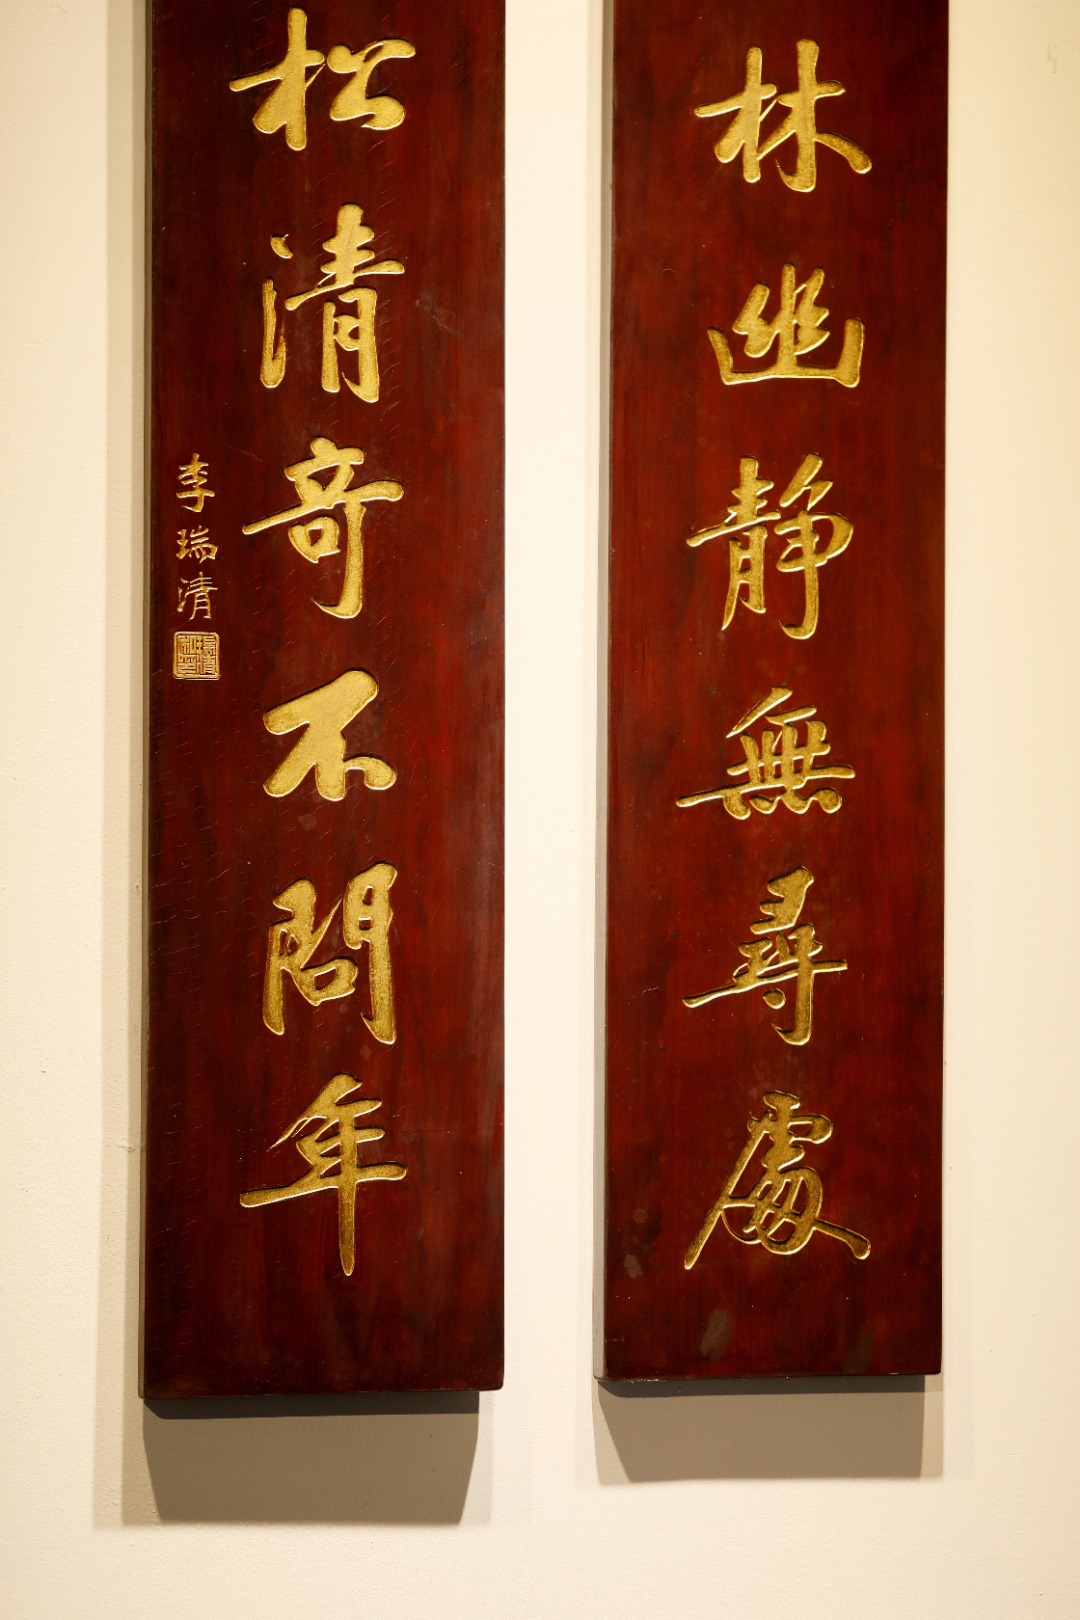 林幽静無尋處
松清奇不問年
李瑞清